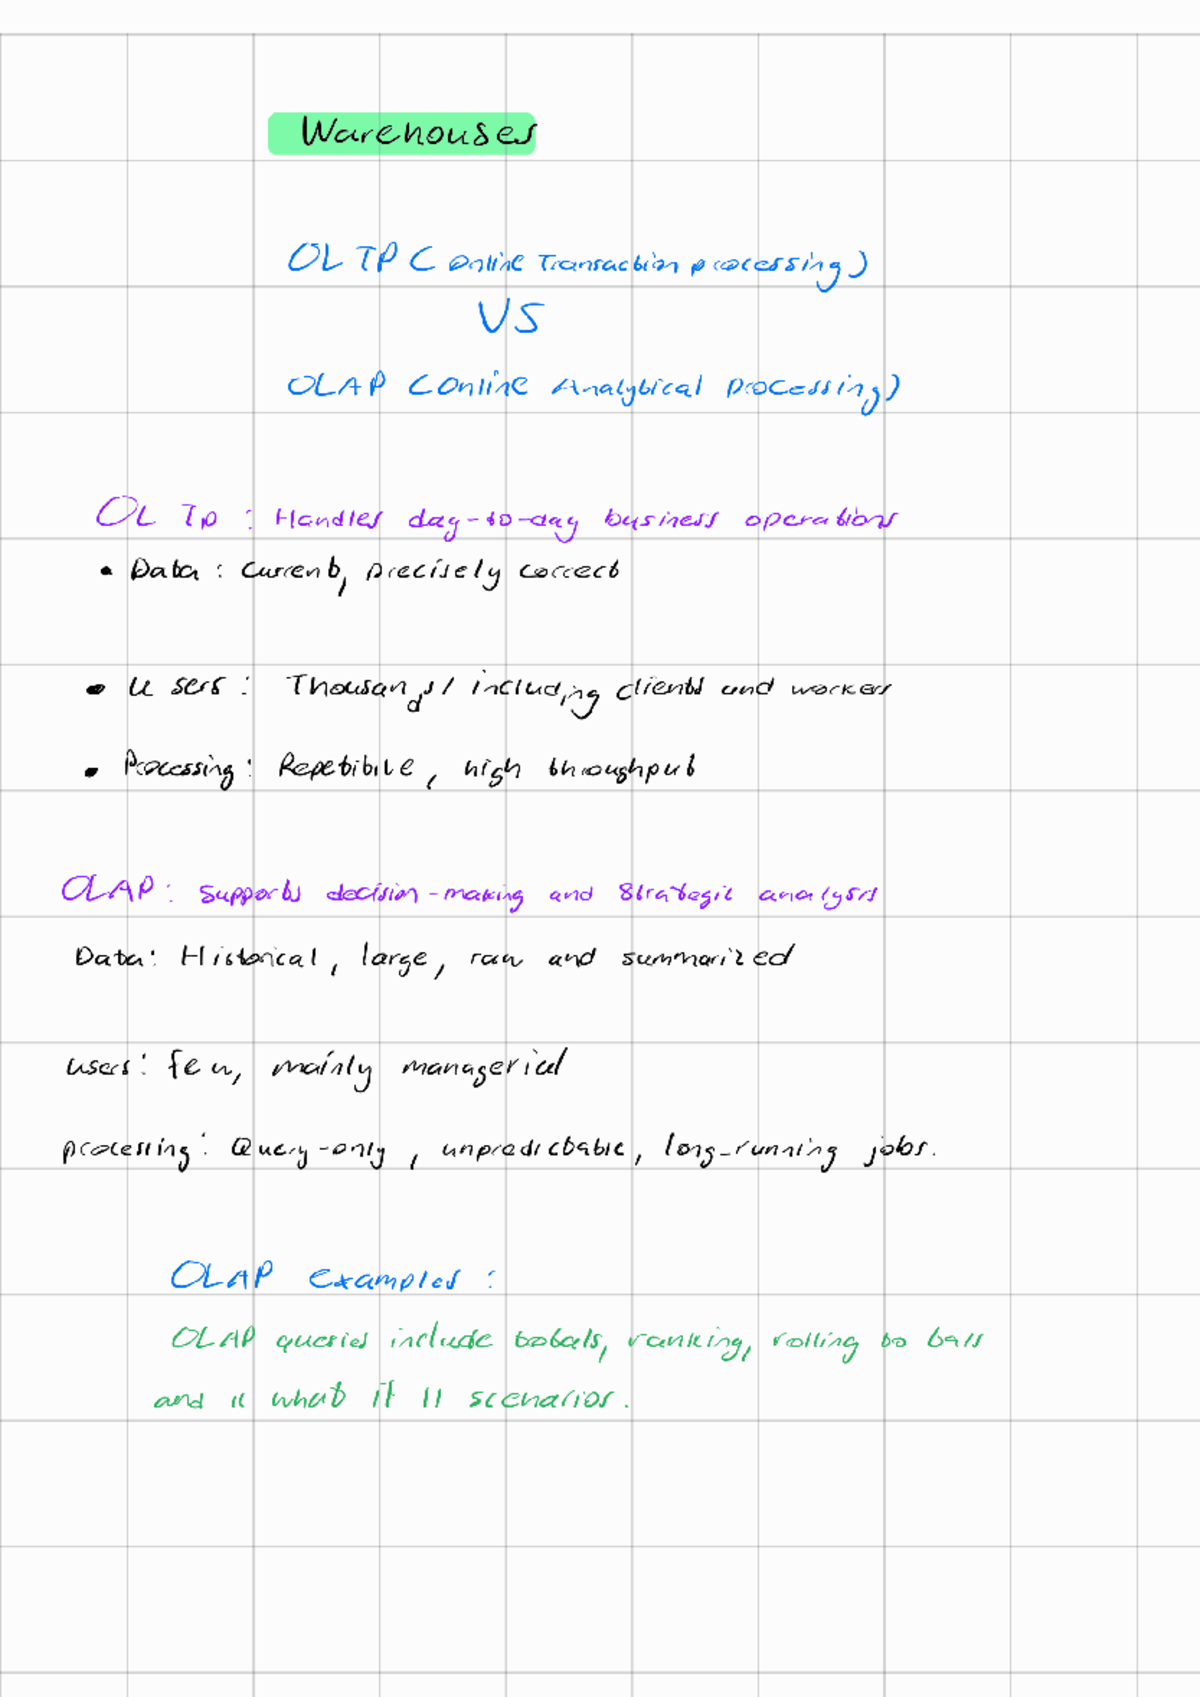 Warehouses
OLTP (online Transaction processing)
VS
OLAP (online Analytical processing)
OLTP : Handles day-to-day business operations
• Data : current, precisely correct
• Users : Thousands / including clients and workers
• Processing : Repetitive, high throughput
OLAP : supports decision-making and strategic analysis
Data : Historical, large, raw and summarized
users : few, mainly managerial
processing : Query-only, unpredictable, long-running jobs.
OLAP examples :
OLAP queries include totals, ranking, rolling to tals
and " what if " scenarios.